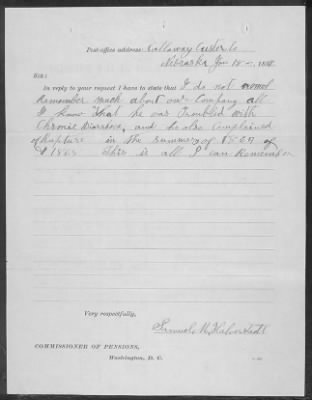 Post-office address: Callaway Custer Co
Nebraska Jan 18 - 188
SIR:
In reply to your request I have to state that I do not
Remember much about our Company all
I know that he was Troubled with
Chronic Diarrhoea, and he also Complained
of Rupture in the Summer of 1864 or
1865 This is all I can Remember
Very respectfully,
Samuel
COMMISSIONER OF PENSIONS,
Washington, D. C.